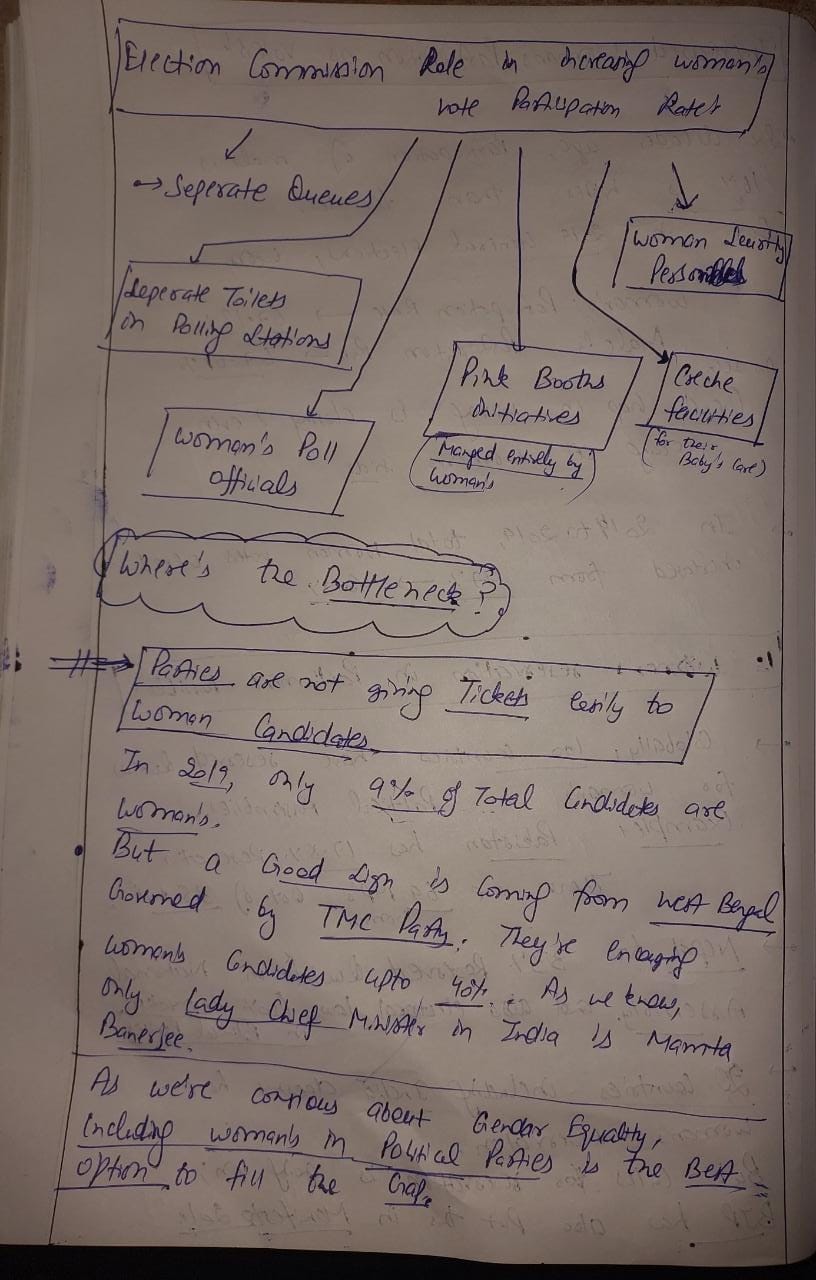 Election Commission Role in increasing woman's
vote Participation Rate?
→ Seperate Queues
Woman Security
Personnels
Seperate Toilets
in Polling Stations
Pink Booths
initiatives
(Manged entirely by
woman's)
Creche
facilities
(for their
Baby's Care)
Woman's Poll
officials
Where's the Bottleneck?
Parties are not giving Tickets easily to
Woman Candidates
In 2019, only 9% of Total Candidates are
Woman's.
But a Good Sign is coming from West Bengal
Governed by TMC Party. They're engaging
woman's Candidates upto 40%. As we know,
only Lady Chief Minister in India is Mamta
Banerjee.
As we're contious about Gendar Equality,
Including woman's in Political Parties is the Best
option to fill the Gap.